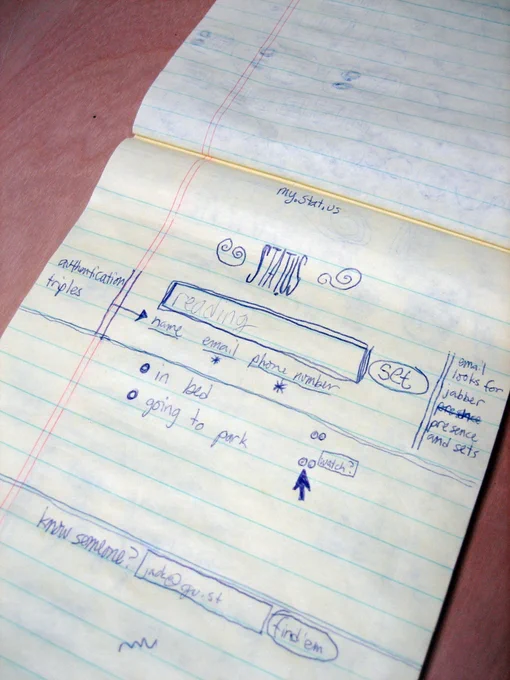 my.stat.us
STATUS
authentication
triples
reading
name email phone number
* *
set
email
looks for
jabber
presence
presence
and sets
in bed
going to park
watch?
know someone?
find 'em